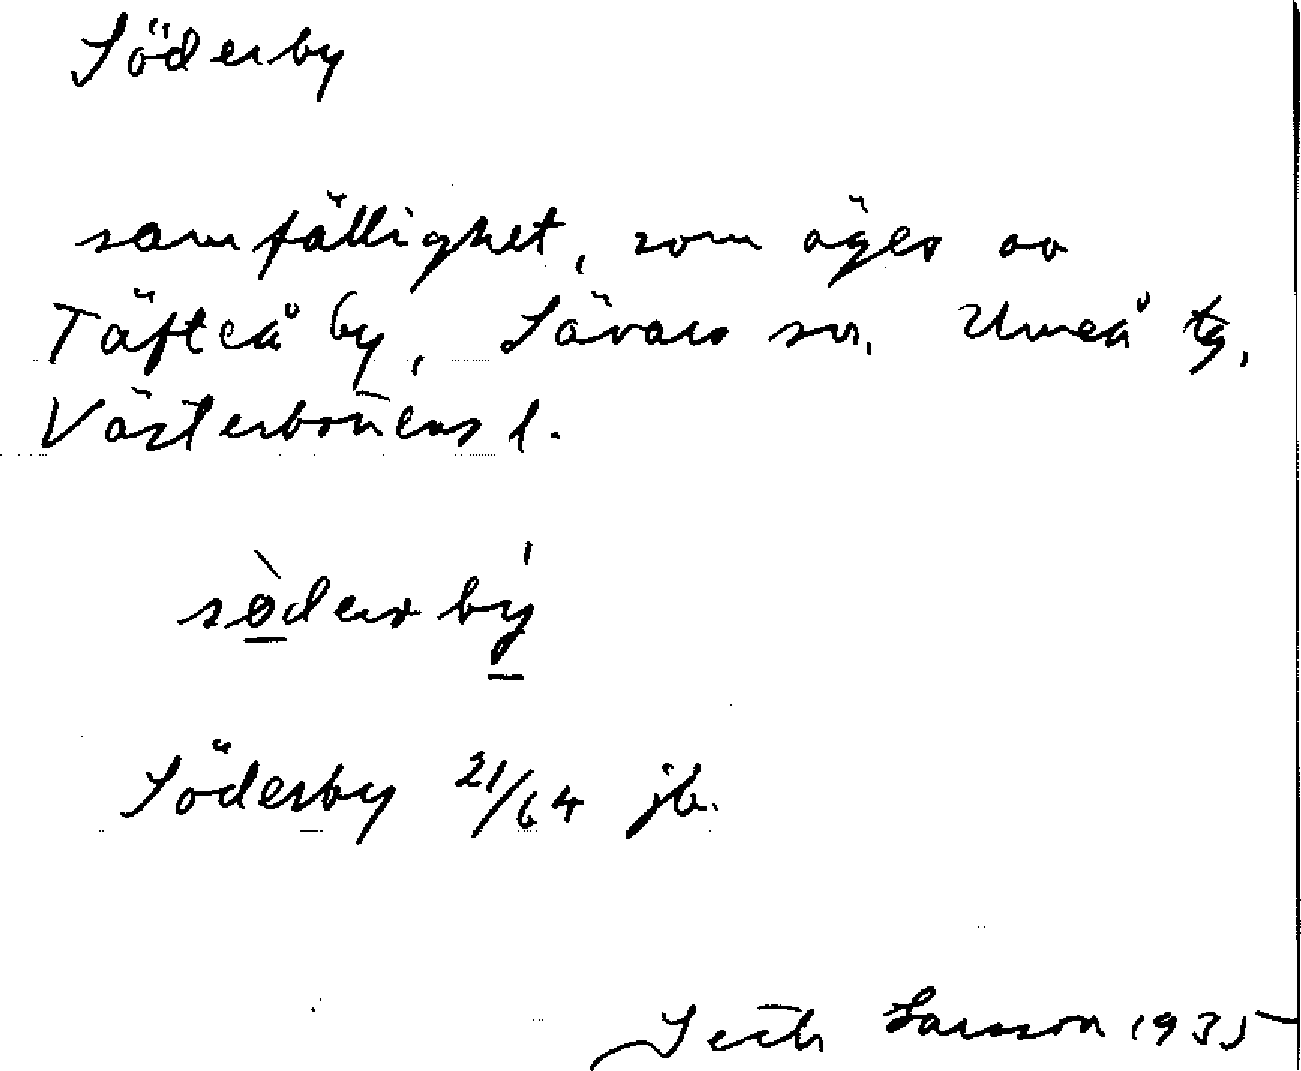 Söderby
samfällighet, som äges av
Täfteå by, Sävars sn, Umeå tg,
Västerbottens l.
söderby
Söderby 21/64 jb.
Larsson 1935